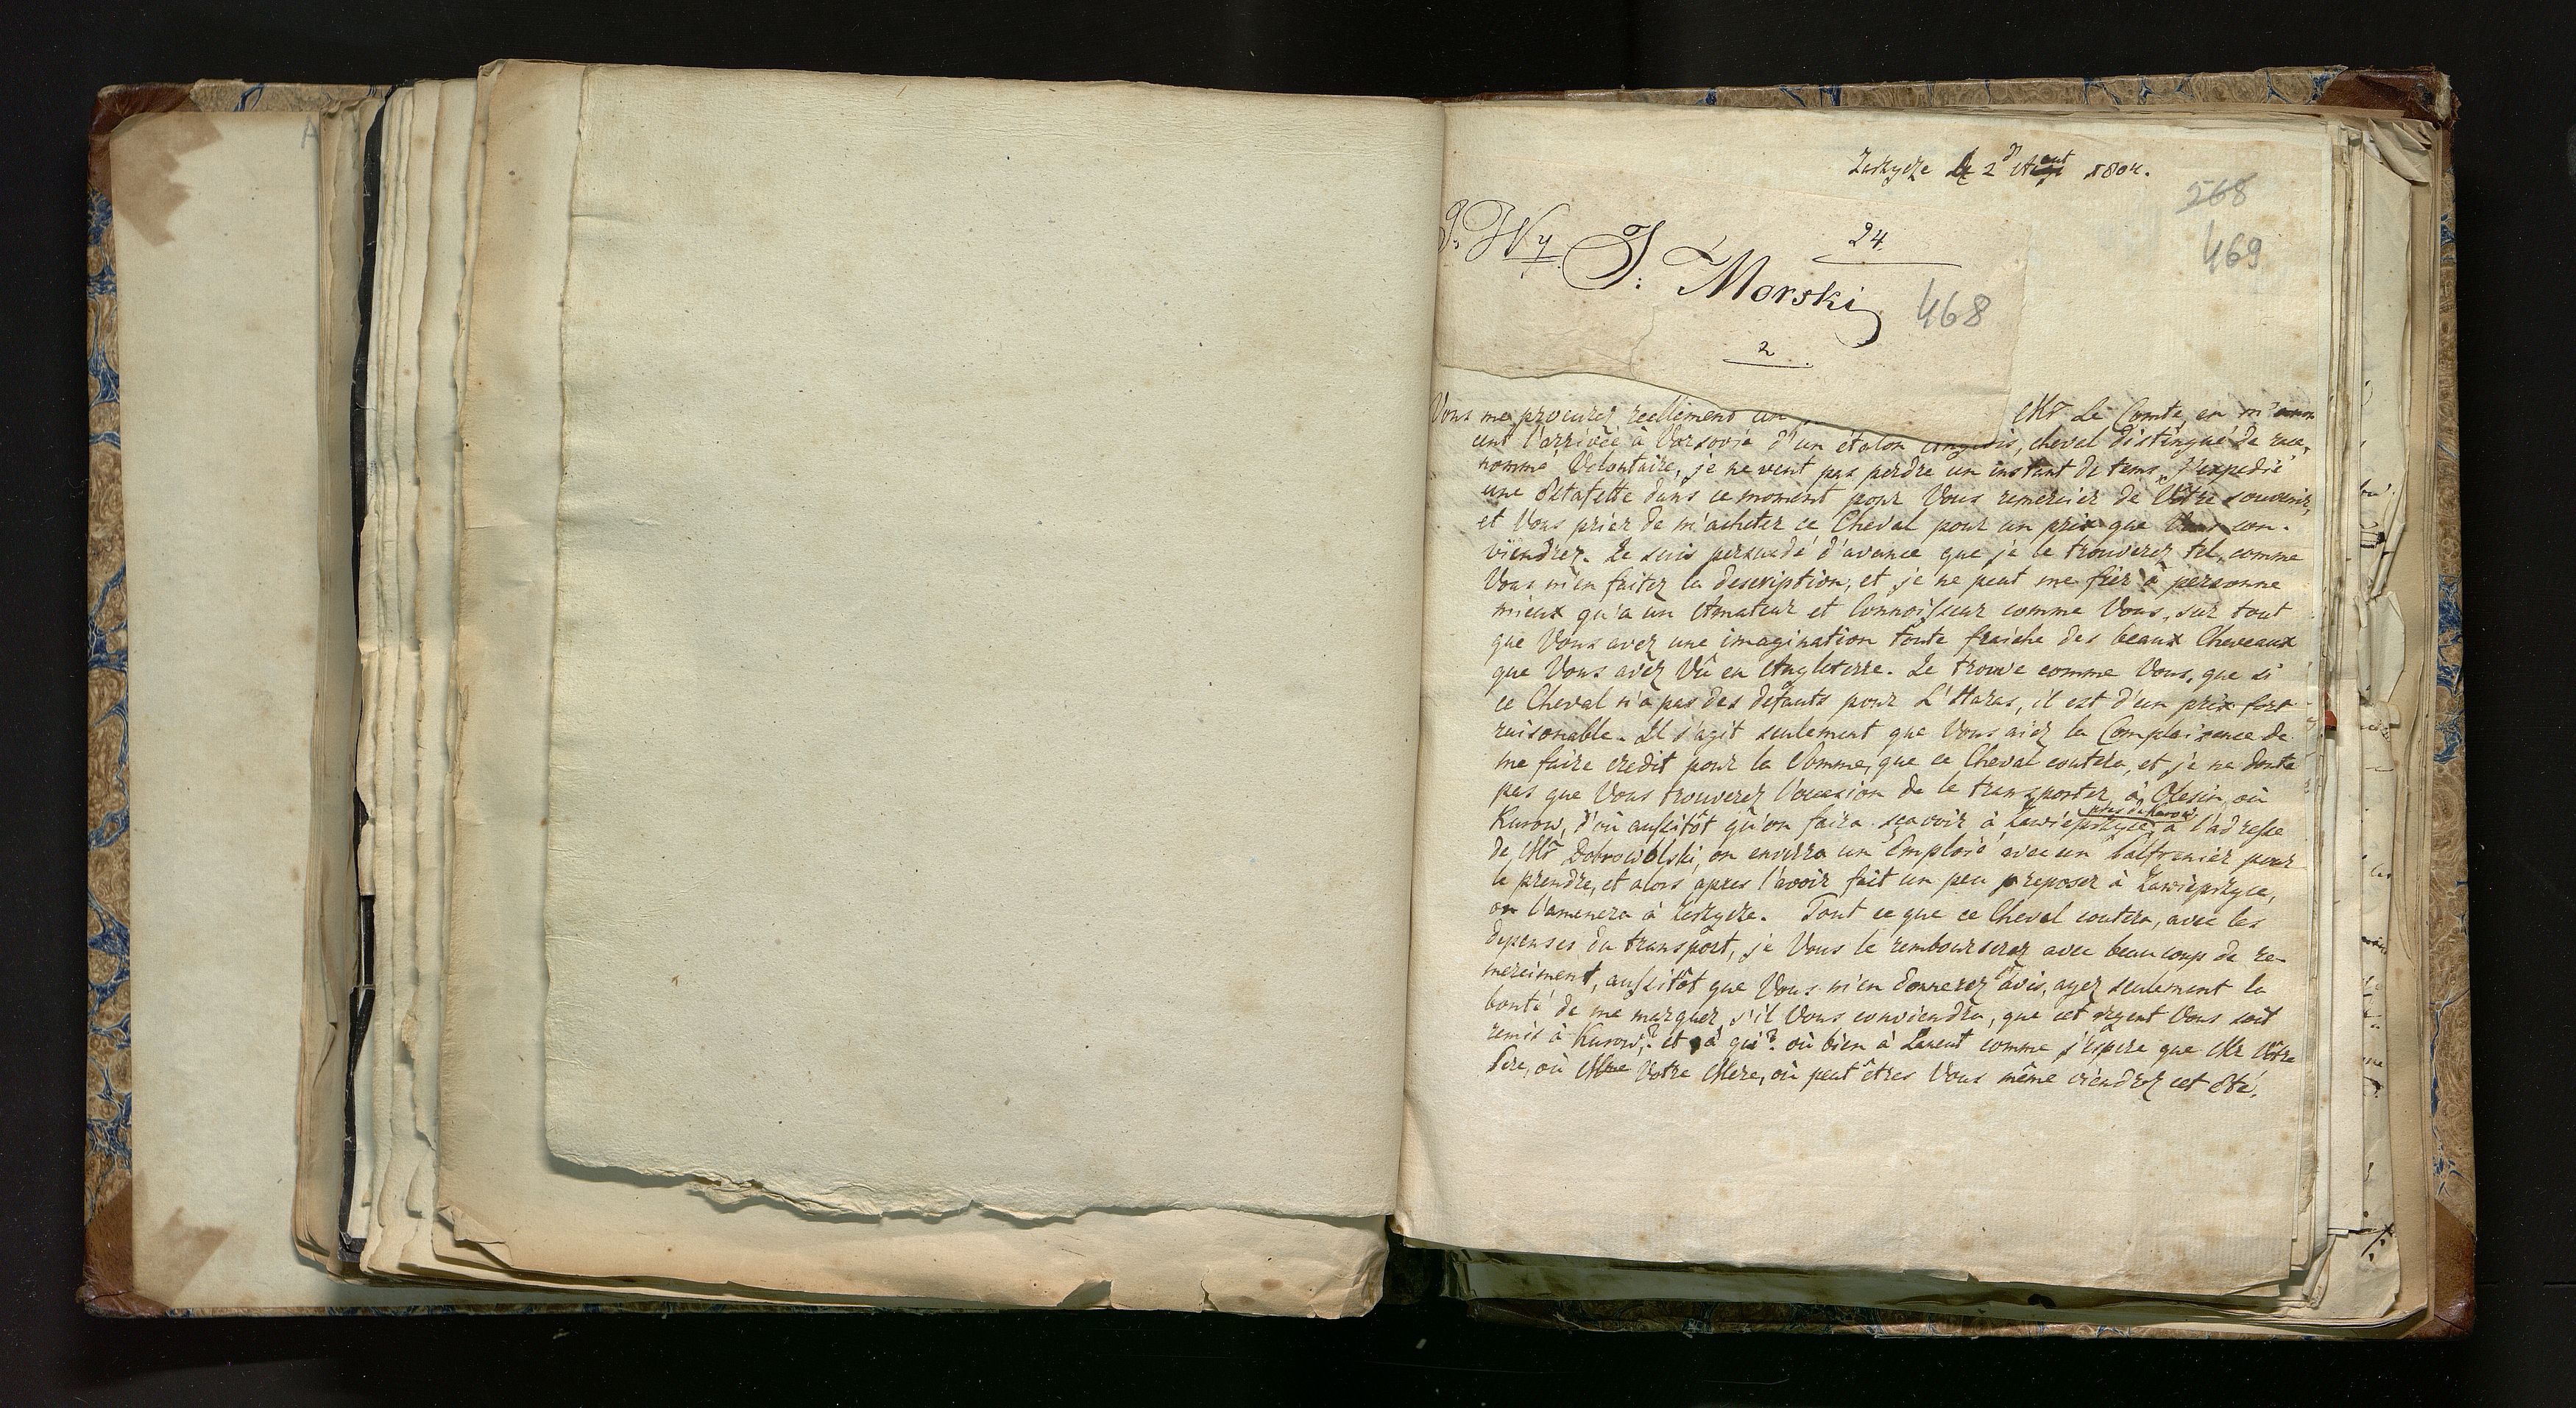 Zarzycze le 2d Aout 1804.
568
469
J: Wy J: Morski
24
468
2
Vous me procurez reellement un Mr Le Comte, en m'anon
cent l'arrivée à Varsovie d'un étalon anglois, cheval distingué de race,
nommé Volontaire, je ne veut pas perdre un instant de tems, J'expedie
une Estafette dans ce moment pour Vous remercier de Vôtre souvenir,
et Vous prier de m'acheter ce Cheval pour un prix que Vous con-
viendrez. Je suis persuadé d'avance que je le trouverez tel, comme
Vous m'en faitez la description, et je ne peut me fier à personne
mieux qu'a un Amateur et Connoisseur comme Vous, sur tout
que Vous avez une imagination toute fraiche des beaux Cheveaux
que Vous avez Vû en Angleterre. Je trouve comme Vous, que si
ce Cheval n'a pas des defauts pour L'Haras, il est d'un prix fort
raisonable. Il s'agit seulement que Vous aiez la Complaisence de
me faire credit pour la Somme, que ce Cheval coutera, et je ne doute
pas que Vous trouverez l'occasion de le transporter à Olesin, où
Kurow, d'où aussitôt qu'on faira sçavoir à Zawieprzyce près de Kurow, à l'adresse
de Mr Dobrowolski, on enverra un Emploié avec un Palfrenier pour
le prendre, et alors apres l'avoir fait un peu reposer à Zawieprzyce,
on l'amenera à Zarzycze. Tout ce que ce Cheval coutera, avec les
depenses du transport, je Vous le rembourserez avec beaucoup de re-
merciment, aussitôt que Vous m'en donnerez avis, ayez seulement la
bonté de me marquer, s'il Vous conviendra, que cet argent Vous soit
remis à Kurow? et à qui? où bien à Lancut comme j'espere que Mr Vôtre
Pere, où Mme Votre Mere, où peut êtres Vous même viendrez cet Eté.